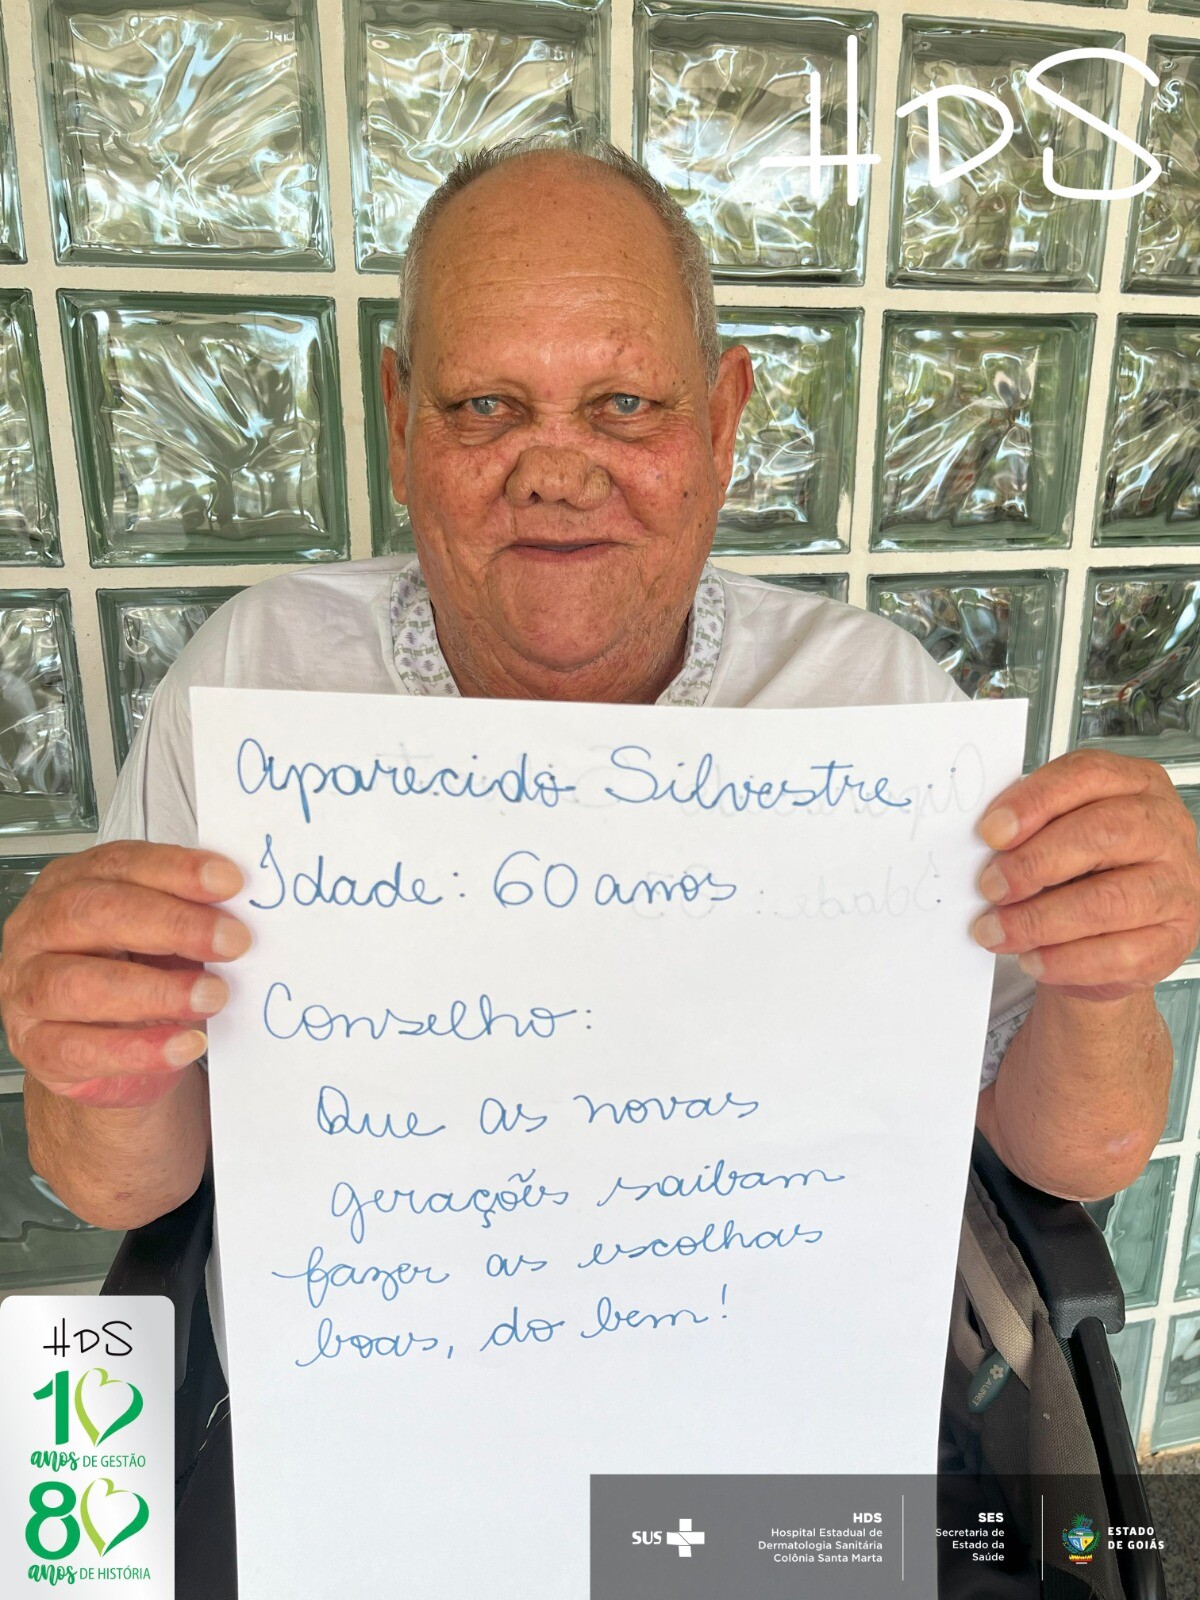 HDS
Aparecido Silvestre
Idade: 60 anos
Conselho:
Que as novas
gerações saibam
fazer as escolhas
boas, do bem!
HDS
10
anos DE GESTÃO
80
anos DE HISTÓRIA
SUS
HDS
Hospital Estadual de
Dermatologia Sanitária
Colônia Santa Marta
SES
Secretaria de
Estado da
Saúde
ESTADO
DE GOIÁS